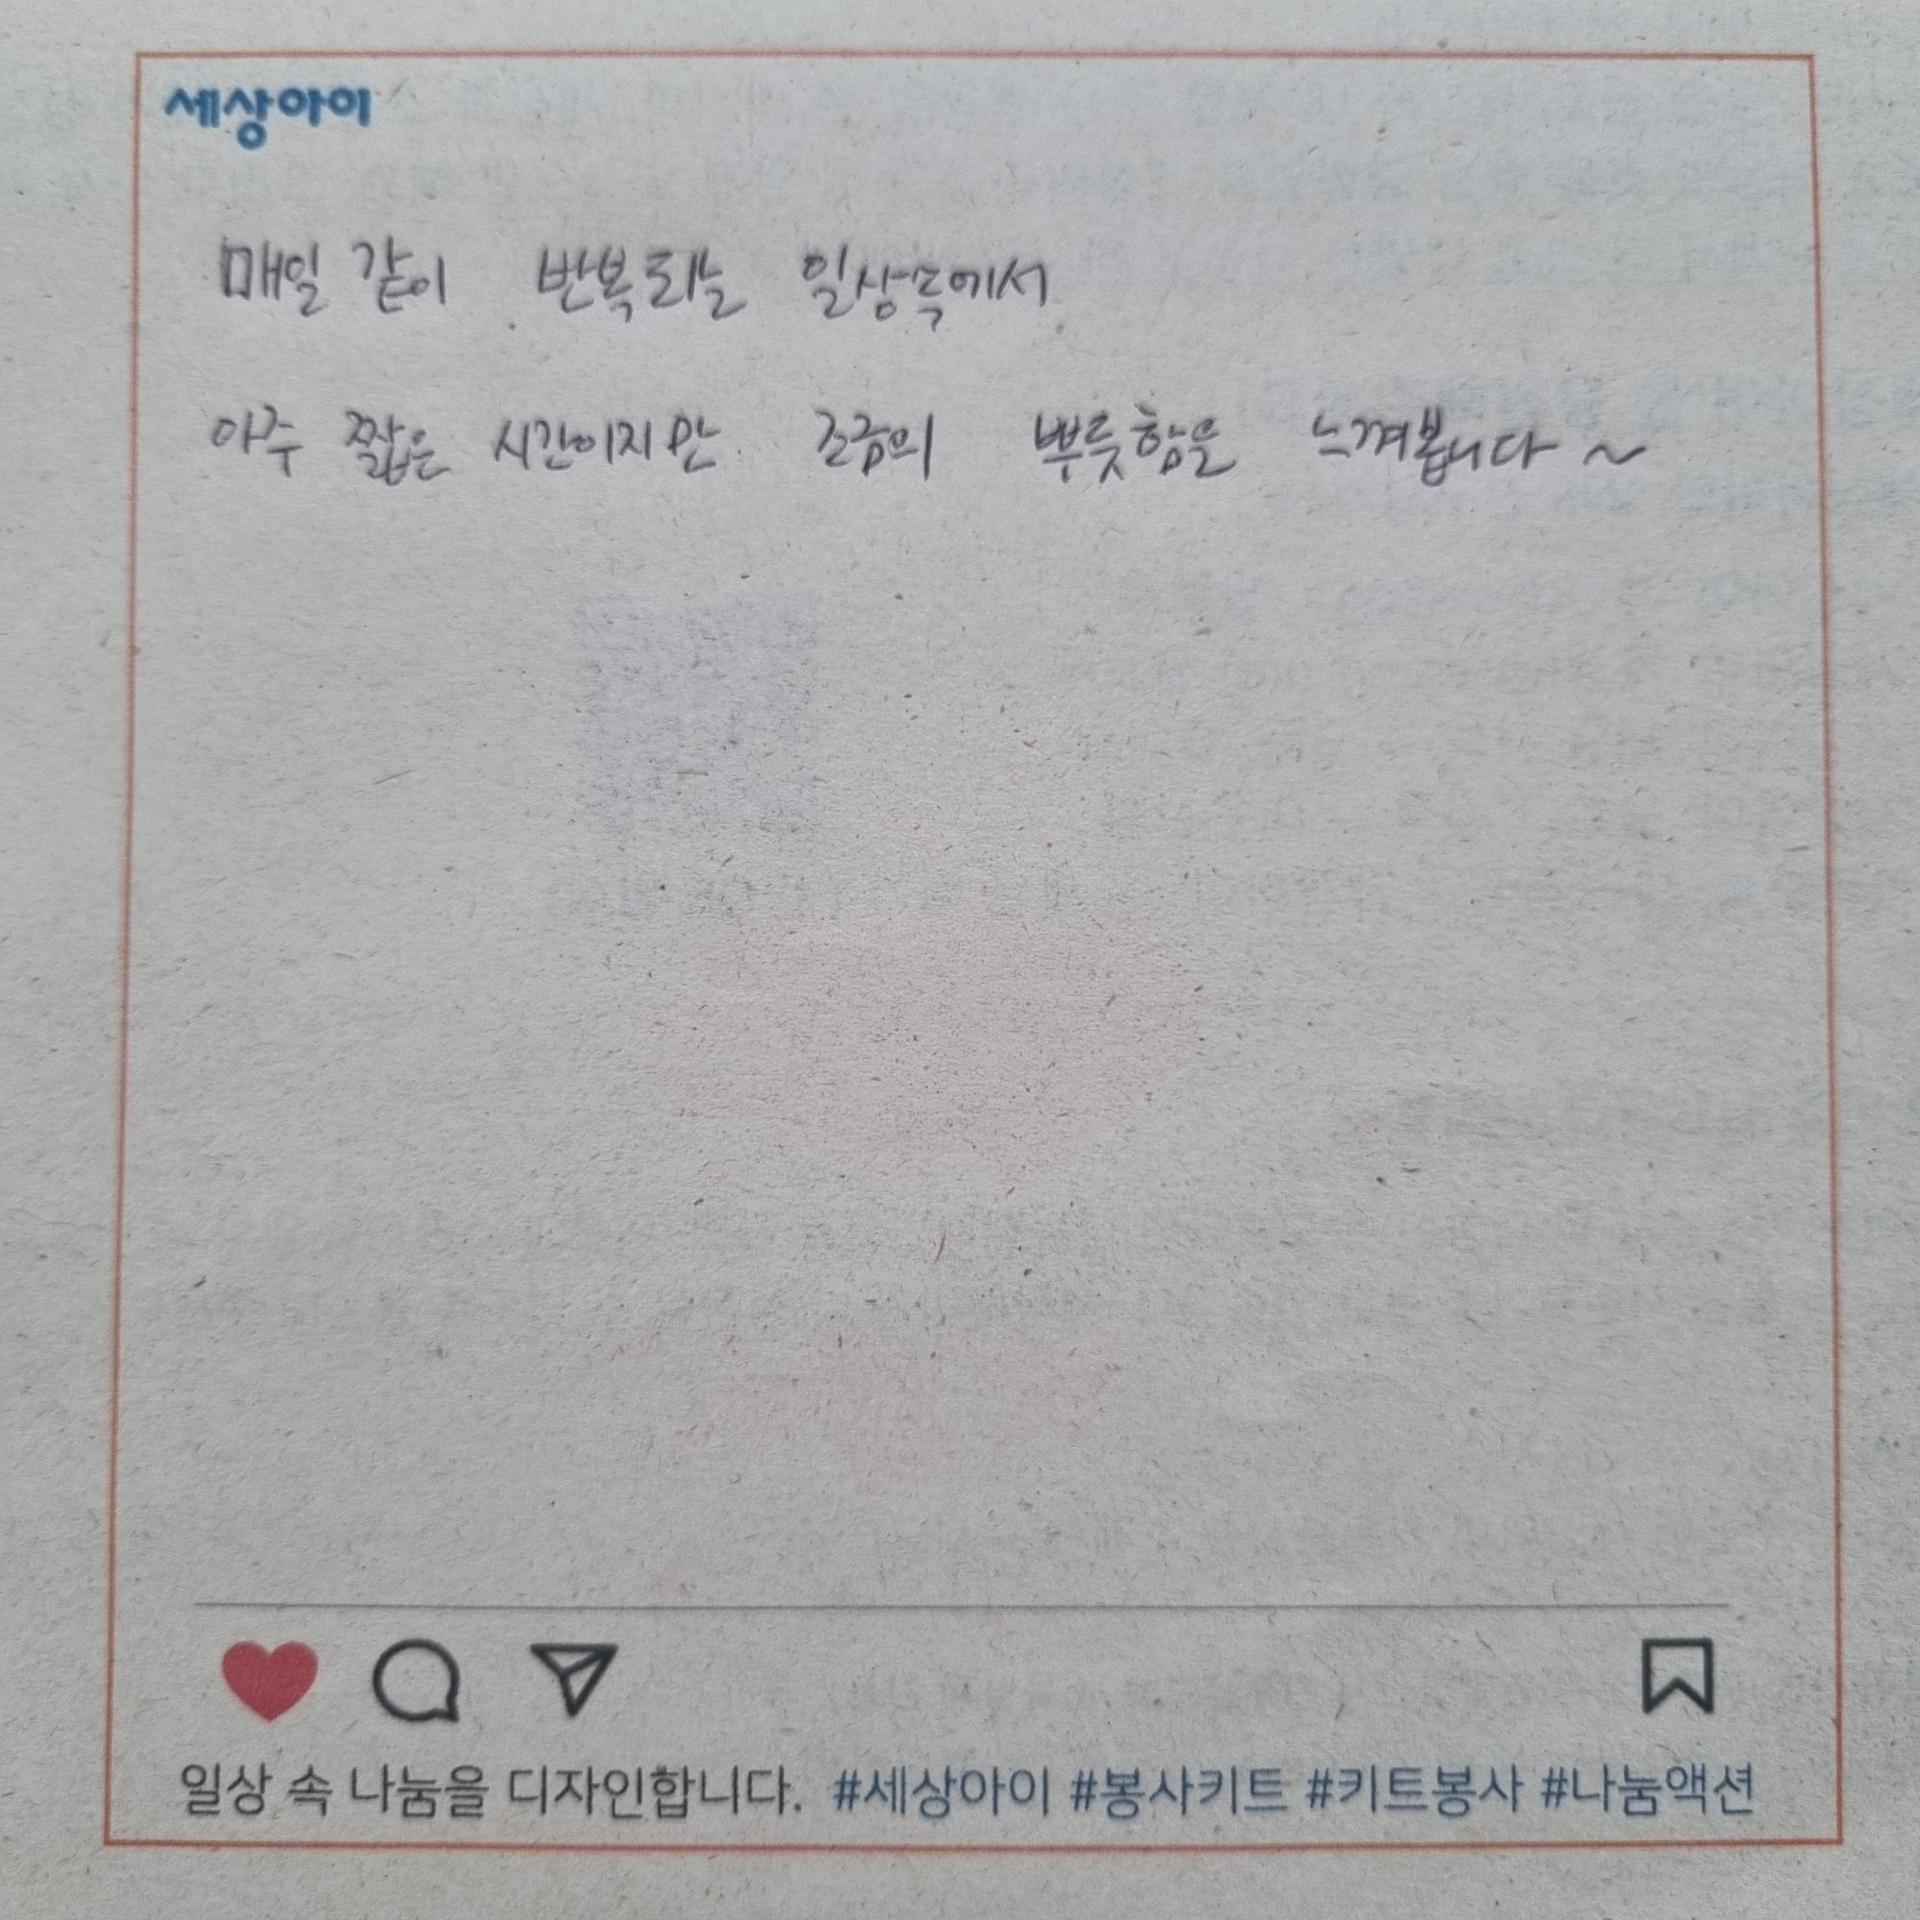 세상아이
매일 같이 반복되는 일상속에서
아주 짧은 시간이지만 조금의 뿌듯함을 느껴봅니다 ~
일상 속 나눔을 디자인합니다. #세상아이 #봉사키트 #키트봉사 #나눔액션